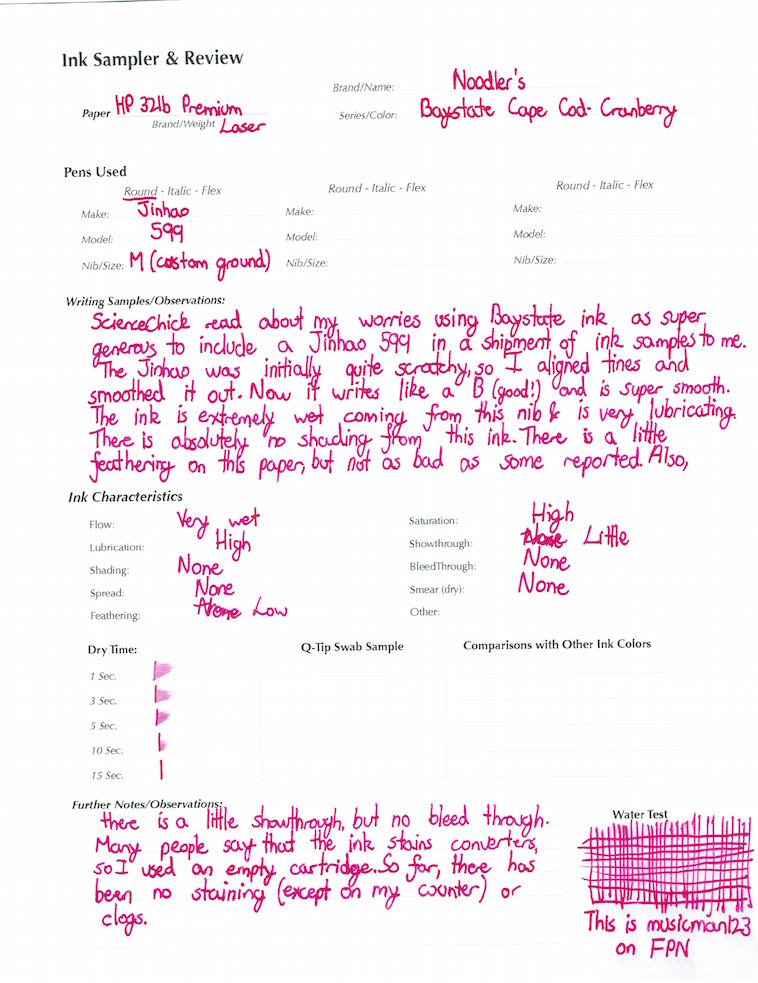 Ink Sampler & Review
Brand/Name: Noodler's
Paper HP 32lb Premium
Brand/Weight Laser
Series/Color: Baystate Cape Cod- Cranberry
Pens Used
Round - Italic - Flex
Make: Jinhao
Model: 599
Nib/Size: M (custom ground)
Round - Italic - Flex
Make:
Model:
Nib/Size:
Round - Italic - Flex
Make:
Model:
Nib/Size:
Writing Samples/Observations:
ScienceChick read about my worries using Baystate ink as super
generous to include a Jinhao 599 in a shipment of ink samples to me.
The Jinhao was initially quite scratchy, so I aligned tines and
smoothed it out. Now it writes like a B (good!) and is super smooth.
The ink is extremely wet coming from this nib & is very lubricating.
There is absolutely no shading from this ink. There is a little
feathering on this paper, but not as bad as some reported. Also,
Ink Characteristics
Flow: Very wet
Lubrication: High
Shading: None
Spread: None
Feathering: None Low
Saturation: High
Showthrough: None Little
BleedThrough: None
Smear (dry): None
Other:
Dry Time:
1 Sec.
3 Sec.
5 Sec.
10 Sec.
15 Sec.
Q-Tip Swab Sample
Comparisons with Other Ink Colors
Further Notes/Observations:
there is a little showthrough, but no bleed through.
Many people say that the ink stains converters,
so I used an empty cartridge. So far, there has
been no staining (except on my counter) or
clogs.
Water Test
This is musicman123
on FPN